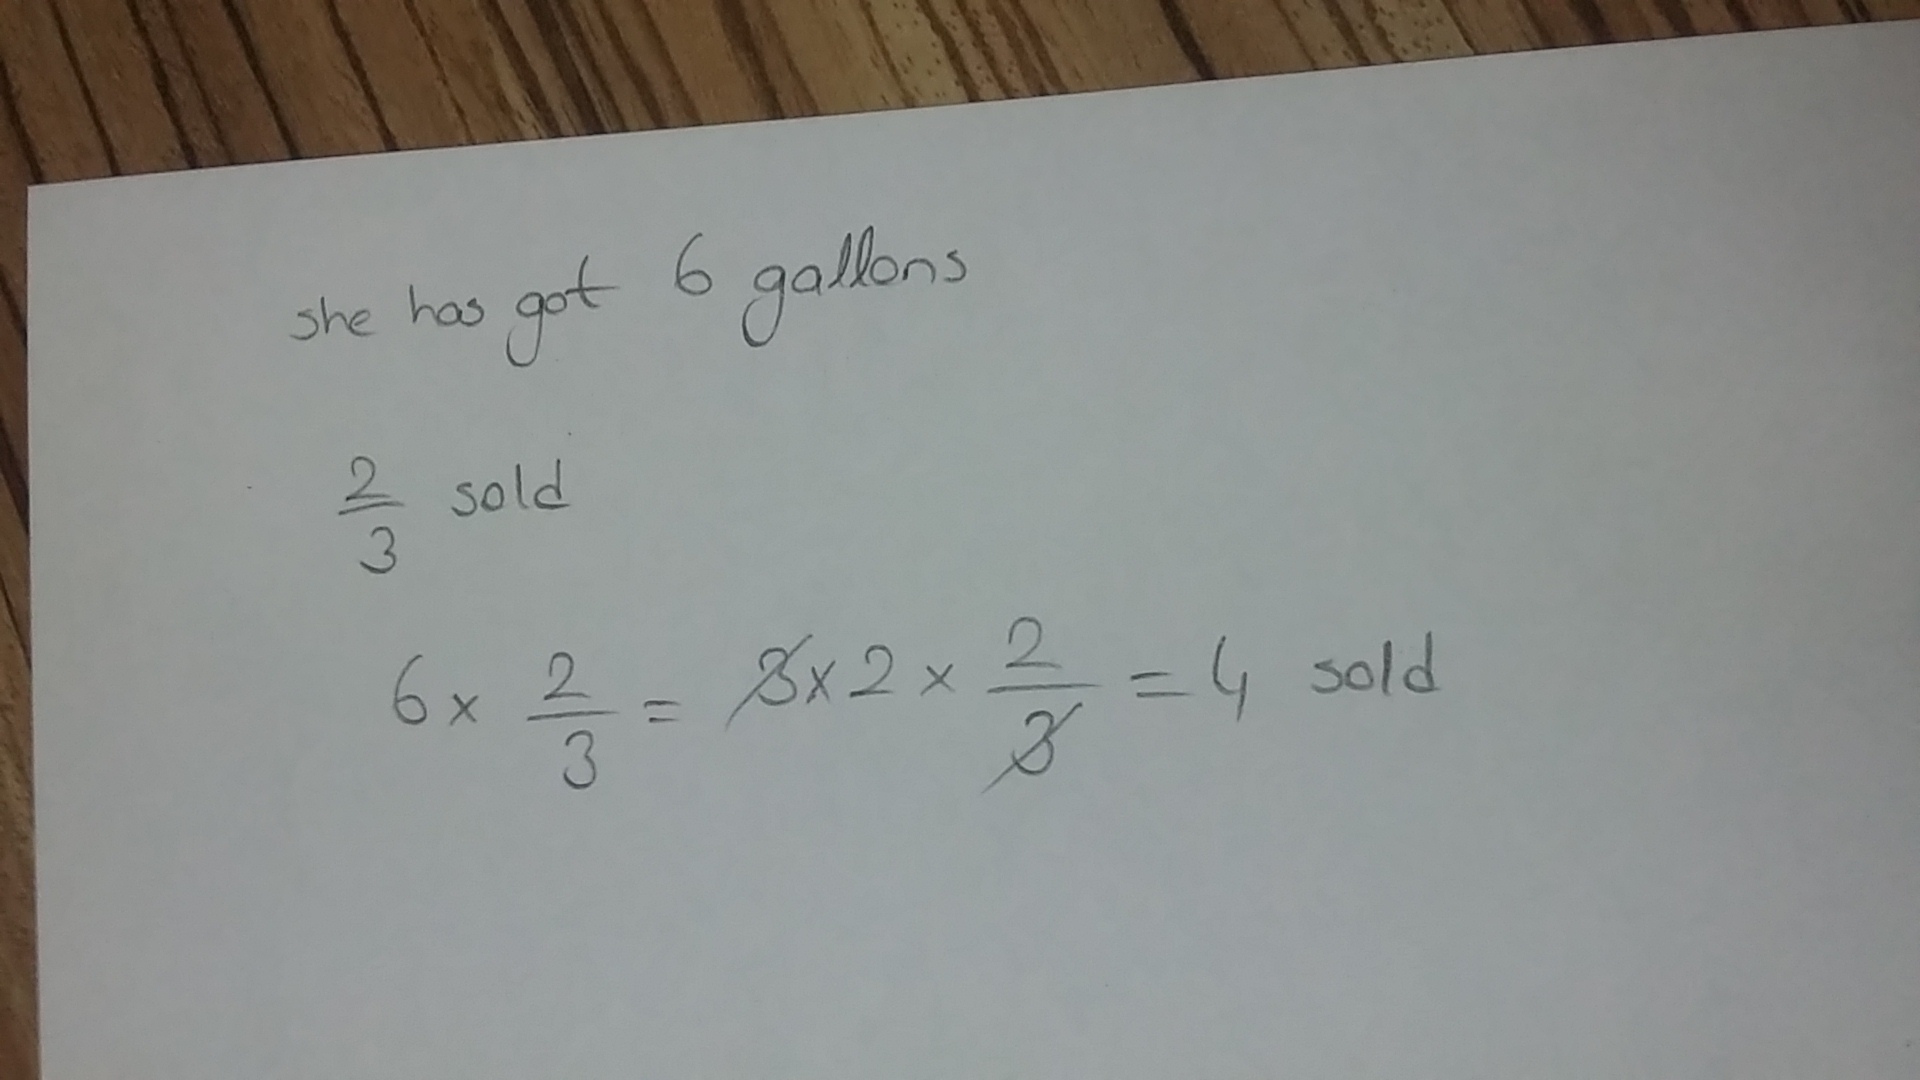 she has got 6 gallons
2/3 sold
6 x 2/3 = 3 x 2 x 2/3 = 4 sold